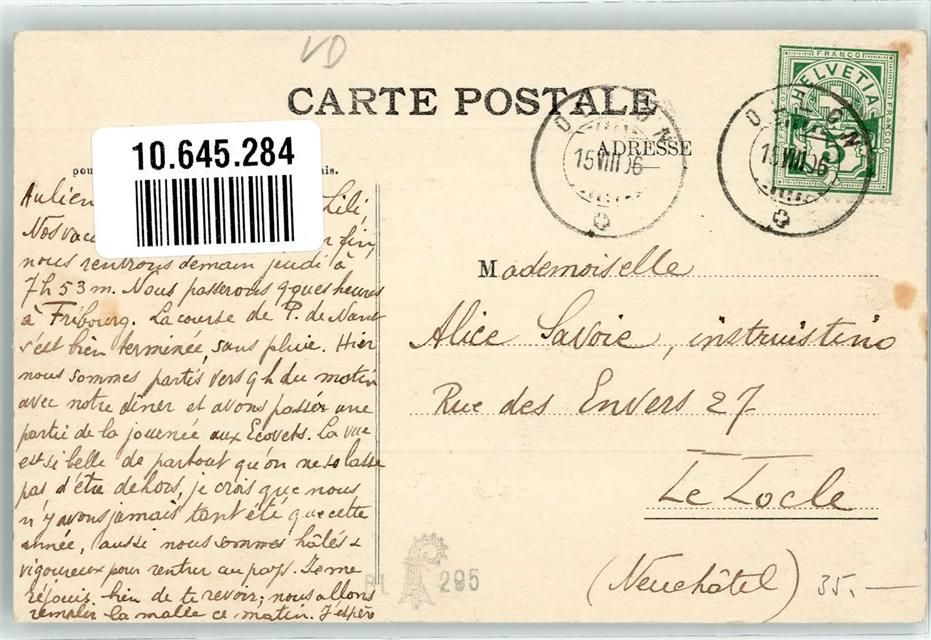 VD
CARTE POSTALE
ADRESSE
10.645.284
FRANCO
HELVETIA
FRANCO
FRANCO
5
15 VIII 06
15 VIII 06
pou
is.
Lili
Nos vac fin,
nous rentrons demain jeudi à
7h 53 m. Nous passerons qques heures
à Fribourg. La course de P. de Nant
s'est bien terminée, sans pluie. Hier
nous sommes partis vers 9 h du matin
avec notre dîner et avons passé une
partie de la journée aux Ecovets. La vue
est si belle de partout qu'on ne se lasse
pas d'être dehors, je crois que nous
n'y avons jamais tant été que cette
année, aussi nous sommes hâlés &
vigoureux pour rentrer au pays. Je me
réjouis bien de te revoir; nous allons
remplir la malle ce matin. J'espère
Mademoiselle
Alice Savoie, instruistino
Rue des Envers 27
Le Locle
(Neuchâtel)
35.—
295